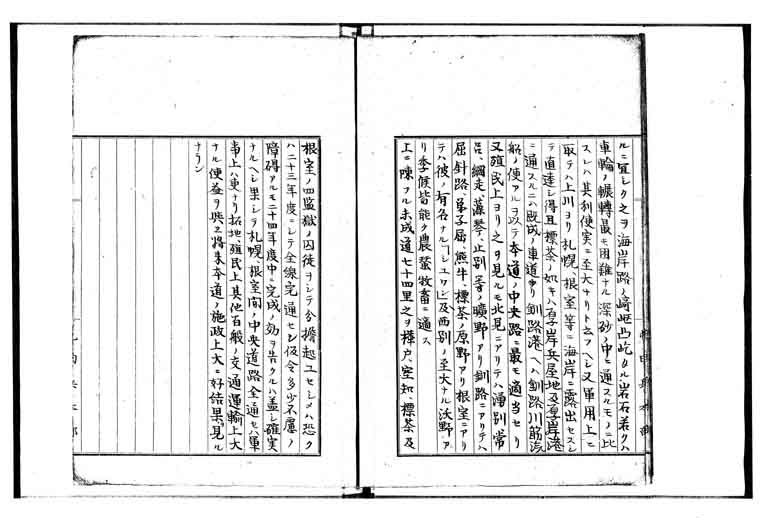 ルニ宜シク之ヲ海岸路ノ崎嶇凸屹タル岩石若クハ
車輪ノ輾轉最モ困難ナル深砂ノ中ニ通スルモノニ比
スレハ其利便実ニ至大ナリト云フヘシ又軍用上ニ
取テハ上川ヨリ札幌、根室等ニ海岸ニ露出セスシ
テ直達シ得且標茶ノ如キハ厚岸兵屋地及厚岸港
ニ通スルニハ既成ノ車道アリ釧路港ヘハ釧路川筋汽
船ノ便アルヲ以テ本道ノ中央路ニ最モ適当セリ
又殖民上ヨリ之ヲ見ルモ北見ニアリテハ湧別常
呂、網走、藻琴、止別等ノ曠野アリ釧路ニアリテハ
屈斜路、弟子屈、熊牛、標茶ノ原野アリ根室ニアリ
テハ彼ノ有名ナル「シユワン」及西別ノ至大ナル沃野ア
リ季候皆能ク農蟄牧畜ニ適ス
上ニ陳フル未成道七十四里之ヲ樺戸、空知、標茶及
根室ノ四監獄ノ囚徒ヲシテ分擔起工セシメハ恐ク
ハ二十三年度ニシテ全線完通セン仮令多少不慮ノ
障碍アルモ二十四年度中ニ完成ノ効ヲ告クルハ盖シ確実
ナルヘシ果シテ札幌、根室間ノ中央道路全通セハ軍
事上ハ更ナリ拓地、殖民上其他百般ノ交通運輸上大
ナル便益ヲ與エ将来本道ノ施政上大ニ好結果ヲ見ル
ナラン